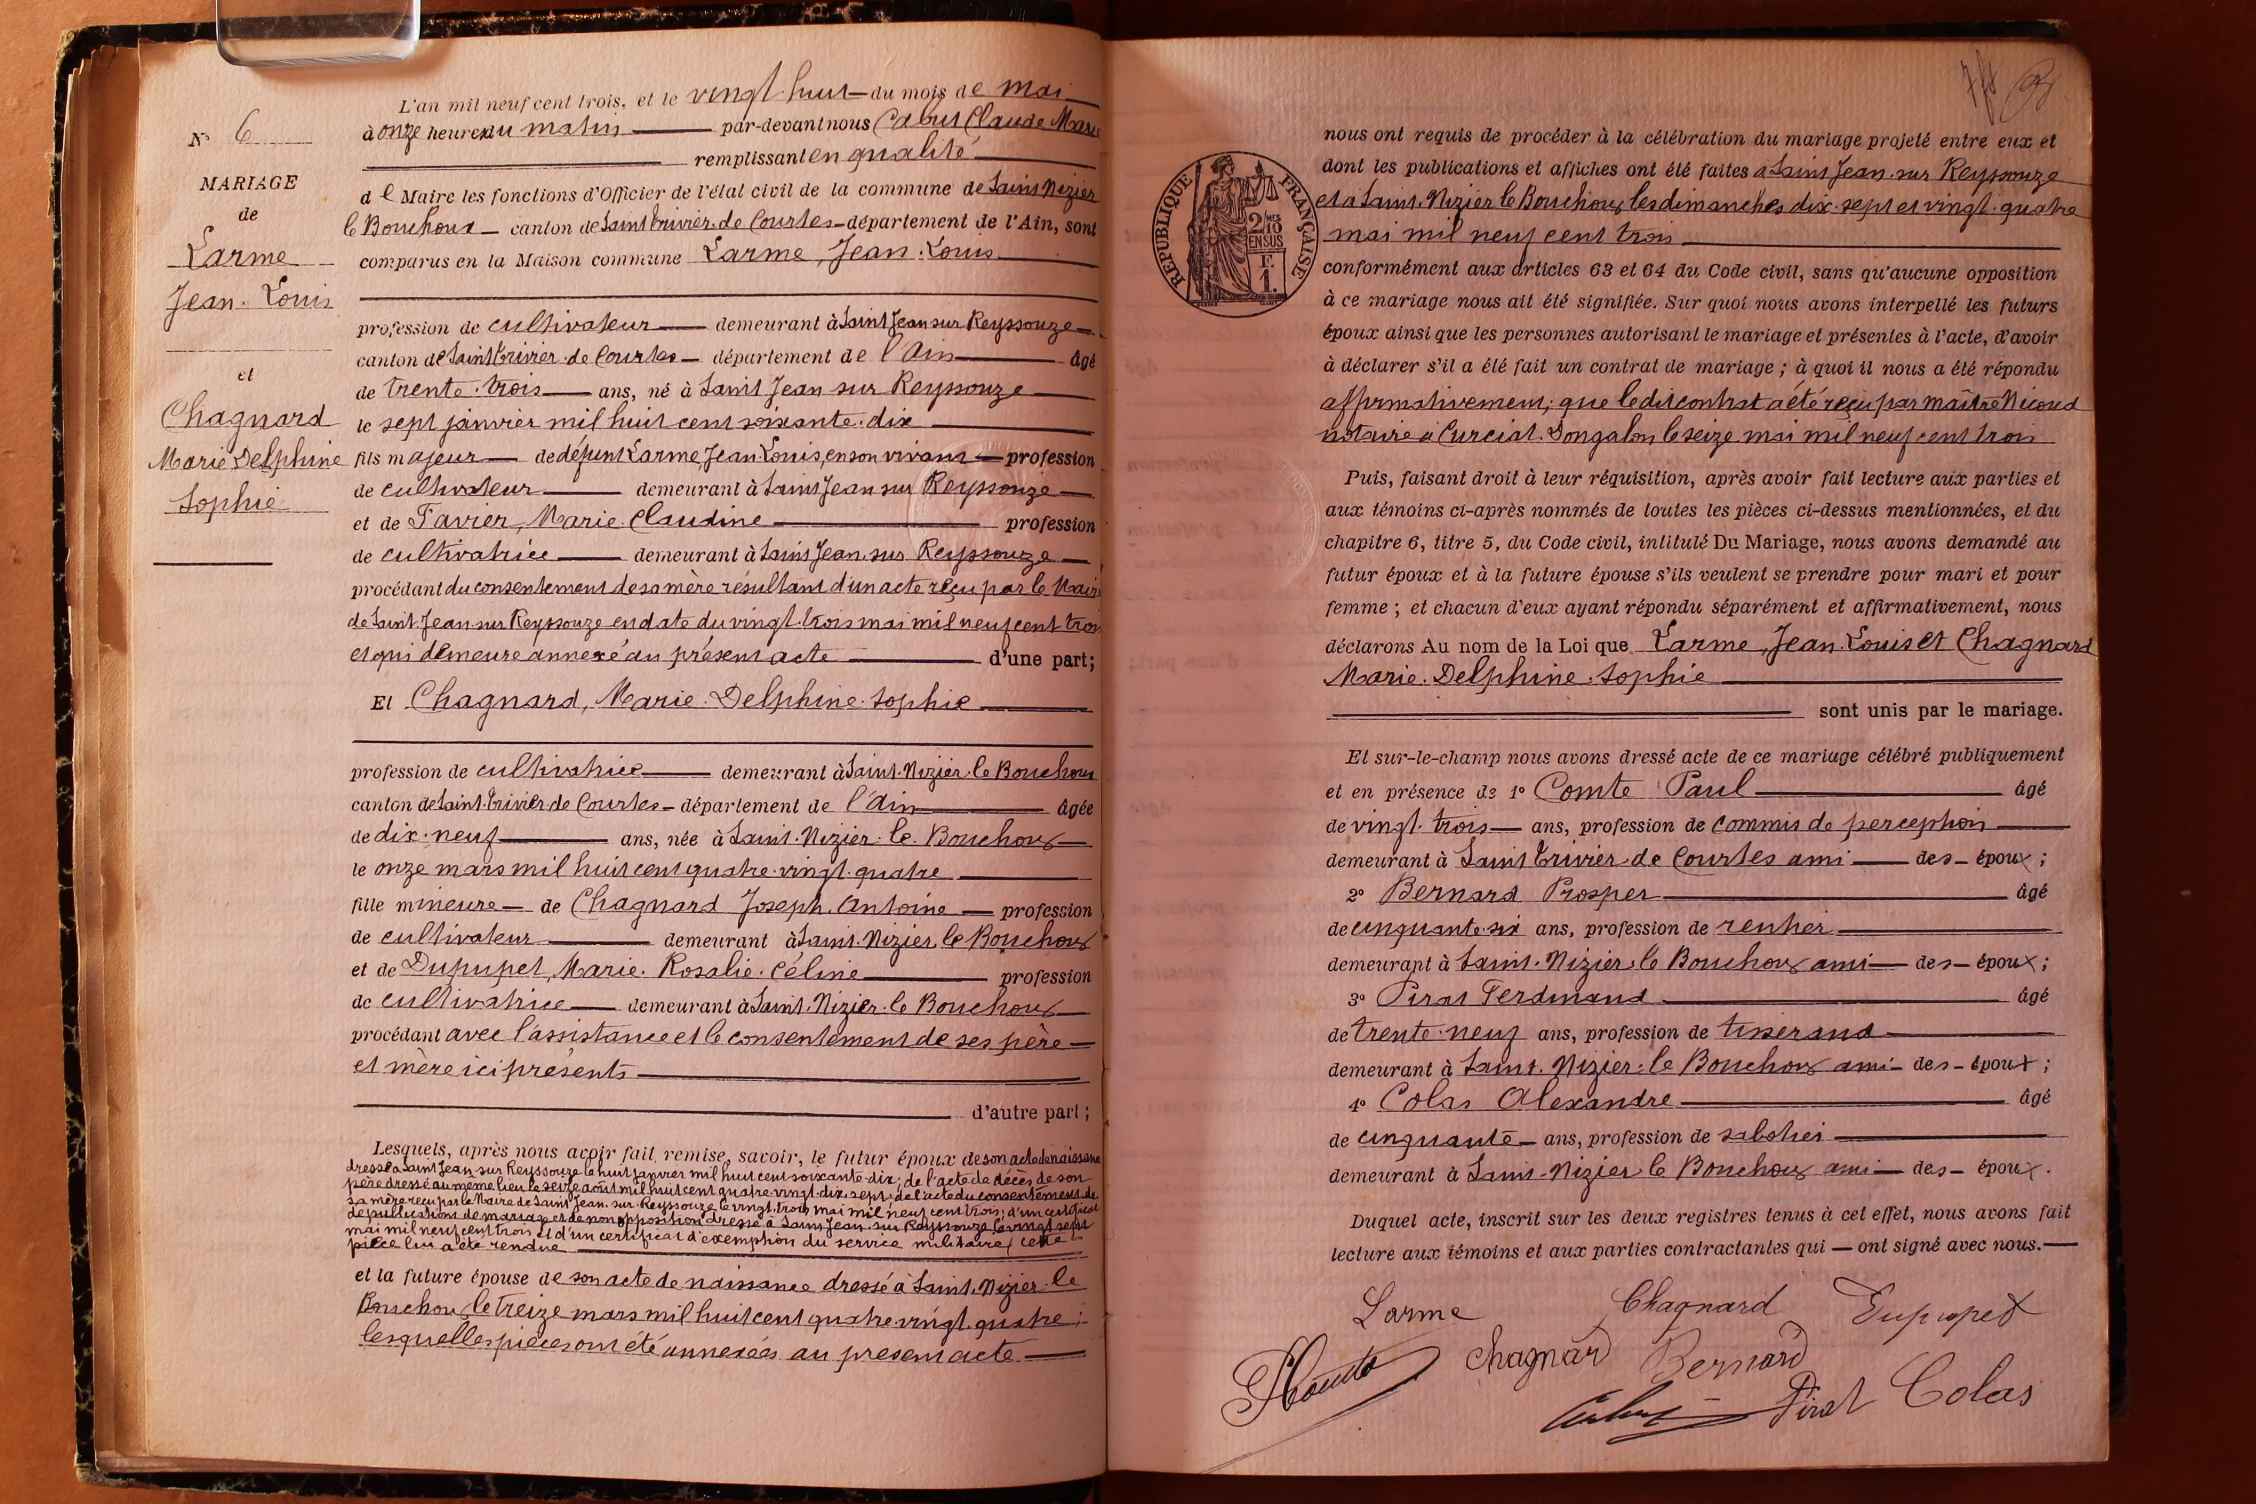 N° 6
MARIAGE
de
Larme
Jean. Louis
et
Chagnard
Marie Delphine
Sophie
L'an mil neuf cent trois, et le vingt huit du mois de mai
à onze heures du matin par-devant nous Cabut Claude Marie
remplissant en qualité
de Maire les fonctions d'Officier de l'état civil de la commune de Saint Nizier
le Bouchoux canton de Saint Trivier de Courtes département de l'Ain, sont
comparus en la Maison commune Larme, Jean. Louis
profession de cultivateur demeurant à Saint Jean sur Reyssouze
canton de Saint Trivier de Courtes département de l'Ain âgé
de trente. trois ans, né à Saint Jean sur Reyssouze
le sept janvier mil huit cent soixante. dix
fils majeur de défunt Larme, Jean. Louis, en son vivant profession
de cultivateur demeurant à Saint Jean sur Reyssouze
et de Favier, Marie. Claudine profession
de cultivatrice demeurant à Saint Jean sur Reyssouze
procédant du consentement de sa mère résultant d'un acte reçu par le Maire
de Saint. Jean sur Reyssouze en date du vingt. trois mai mil neuf cent trois
et qui demeure annexé au présent acte d'une part;
Et Chagnard, Marie. Delphine. Sophie
profession de cultivatrice demeurant à Saint. Nizier. le Bouchoux
canton de Saint. Trivier de Courtes département de l'Ain âgée
de dix. neuf ans, née à Saint. Nizier. le. Bouchoux
le onze mars mil huit cent quatre. vingt. quatre
fille mineure de Chagnard Joseph. Antoine profession
de cultivateur demeurant à Saint. Nizier. le Bouchoux
et de Dupupet, Marie. Rosalie. Céline profession
de cultivatrice demeurant à Saint. Nizier. le Bouchoux
procédant avec l'assistance et le consentement de ses père
et mère ici présents
d'autre part;
Lesquels, après nous avoir fait remise, savoir, le futur époux de son acte de naissance
dressé à Saint Jean sur Reyssouze le huit janvier mil huit cent soixante. dix; de l'acte de décès de son
père dressé au même lieu le seize août mil huit cent quatre vingt. dix. sept; de l'acte du consentement de
sa mère reçu par le Maire de Saint Jean. sur. Reyssouze le vingt. trois mai mil neuf cent trois; d'un certificat
de publications de mariage et de non opposition dressé à Saint Jean. sur Reyssouze le vingt sept
mai mil neuf cent trois et d'un certificat d'exemption du service militaire, cette
pièce lui a été rendue
et la future épouse de son acte de naissance dressé à Saint. Nizier. le
Bouchoux le treize mars mil huit cent quatre vingt. quatre;
lesquelles pièces ont été annexées au présent acte
RÉPUBLIQUE FRANÇAISE
2/10 EN SUS
F. 1.
nous ont requis de procéder à la célébration du mariage projeté entre eux et
dont les publications et affiches ont été faites à Saint Jean. sur Reyssouze
et à Saint. Nizier le Bouchoux, les dimanches dix. sept et vingt. quatre
mai mil neuf cent trois
conformément aux articles 63 et 64 du Code civil, sans qu'aucune opposition
à ce mariage nous ait été signifiée. Sur quoi nous avons interpellé les futurs
époux ainsi que les personnes autorisant le mariage et présentes à l'acte, d'avoir
à déclarer s'il a été fait un contrat de mariage; à quoi il nous a été répondu
affirmativement; que le dit contrat a été reçu par maître Nicoud
notaire à Curciat. Dongalon le seize mai mil neuf cent trois
Puis, faisant droit à leur réquisition, après avoir fait lecture aux parties et
aux témoins ci-après nommés de toutes les pièces ci-dessus mentionnées, et du
chapitre 6, titre 5, du Code civil, intitulé Du Mariage, nous avons demandé au
futur époux et à la future épouse s'ils veulent se prendre pour mari et pour
femme; et chacun d'eux ayant répondu séparément et affirmativement, nous
déclarons Au nom de la Loi que Larme, Jean. Louis et Chagnard
Marie. Delphine. Sophie
sont unis par le mariage.
Et sur-le-champ nous avons dressé acte de ce mariage célébré publiquement
et en présence de 1° Comte Paul âgé
de vingt. trois ans, profession de commis de perception
demeurant à Saint Trivier de Courtes ami des époux;
2° Bernard Prosper âgé
de cinquante. six ans, profession de rentier
demeurant à Saint. Nizier. le Bouchoux ami des époux;
3° Pirat Ferdinand âgé
de trente. neuf ans, profession de tisserand
demeurant à Saint. Nizier. le Bouchoux ami des époux;
4° Colas Alexandre âgé
de cinquante ans, profession de sabotier
demeurant à Saint. Nizier le Bouchoux ami des époux.
Duquel acte, inscrit sur les deux registres tenus à cet effet, nous avons fait
lecture aux témoins et aux parties contractantes qui ont signé avec nous.
Larme Chagnard Dupupet
PComte Chagnard Bernard
Cabut Pirat Colas